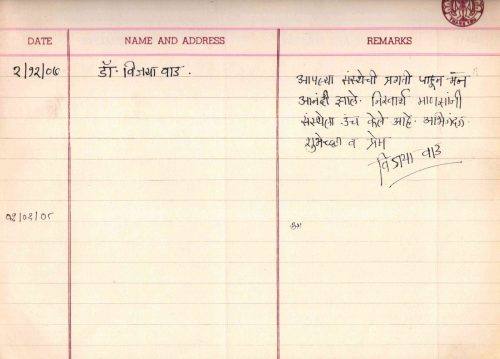 DATE NAME AND ADDRESS REMARKS
२/१२/०७ डॉ. विजया वाड.
आपल्या संस्थेची प्रगती पाहून मन
आनंदी झाले. निस्वार्थ माणसांनी
संस्थेला उंच केले आहे. अभिनंदन
शुभेच्छा व प्रेम
विजया वाड